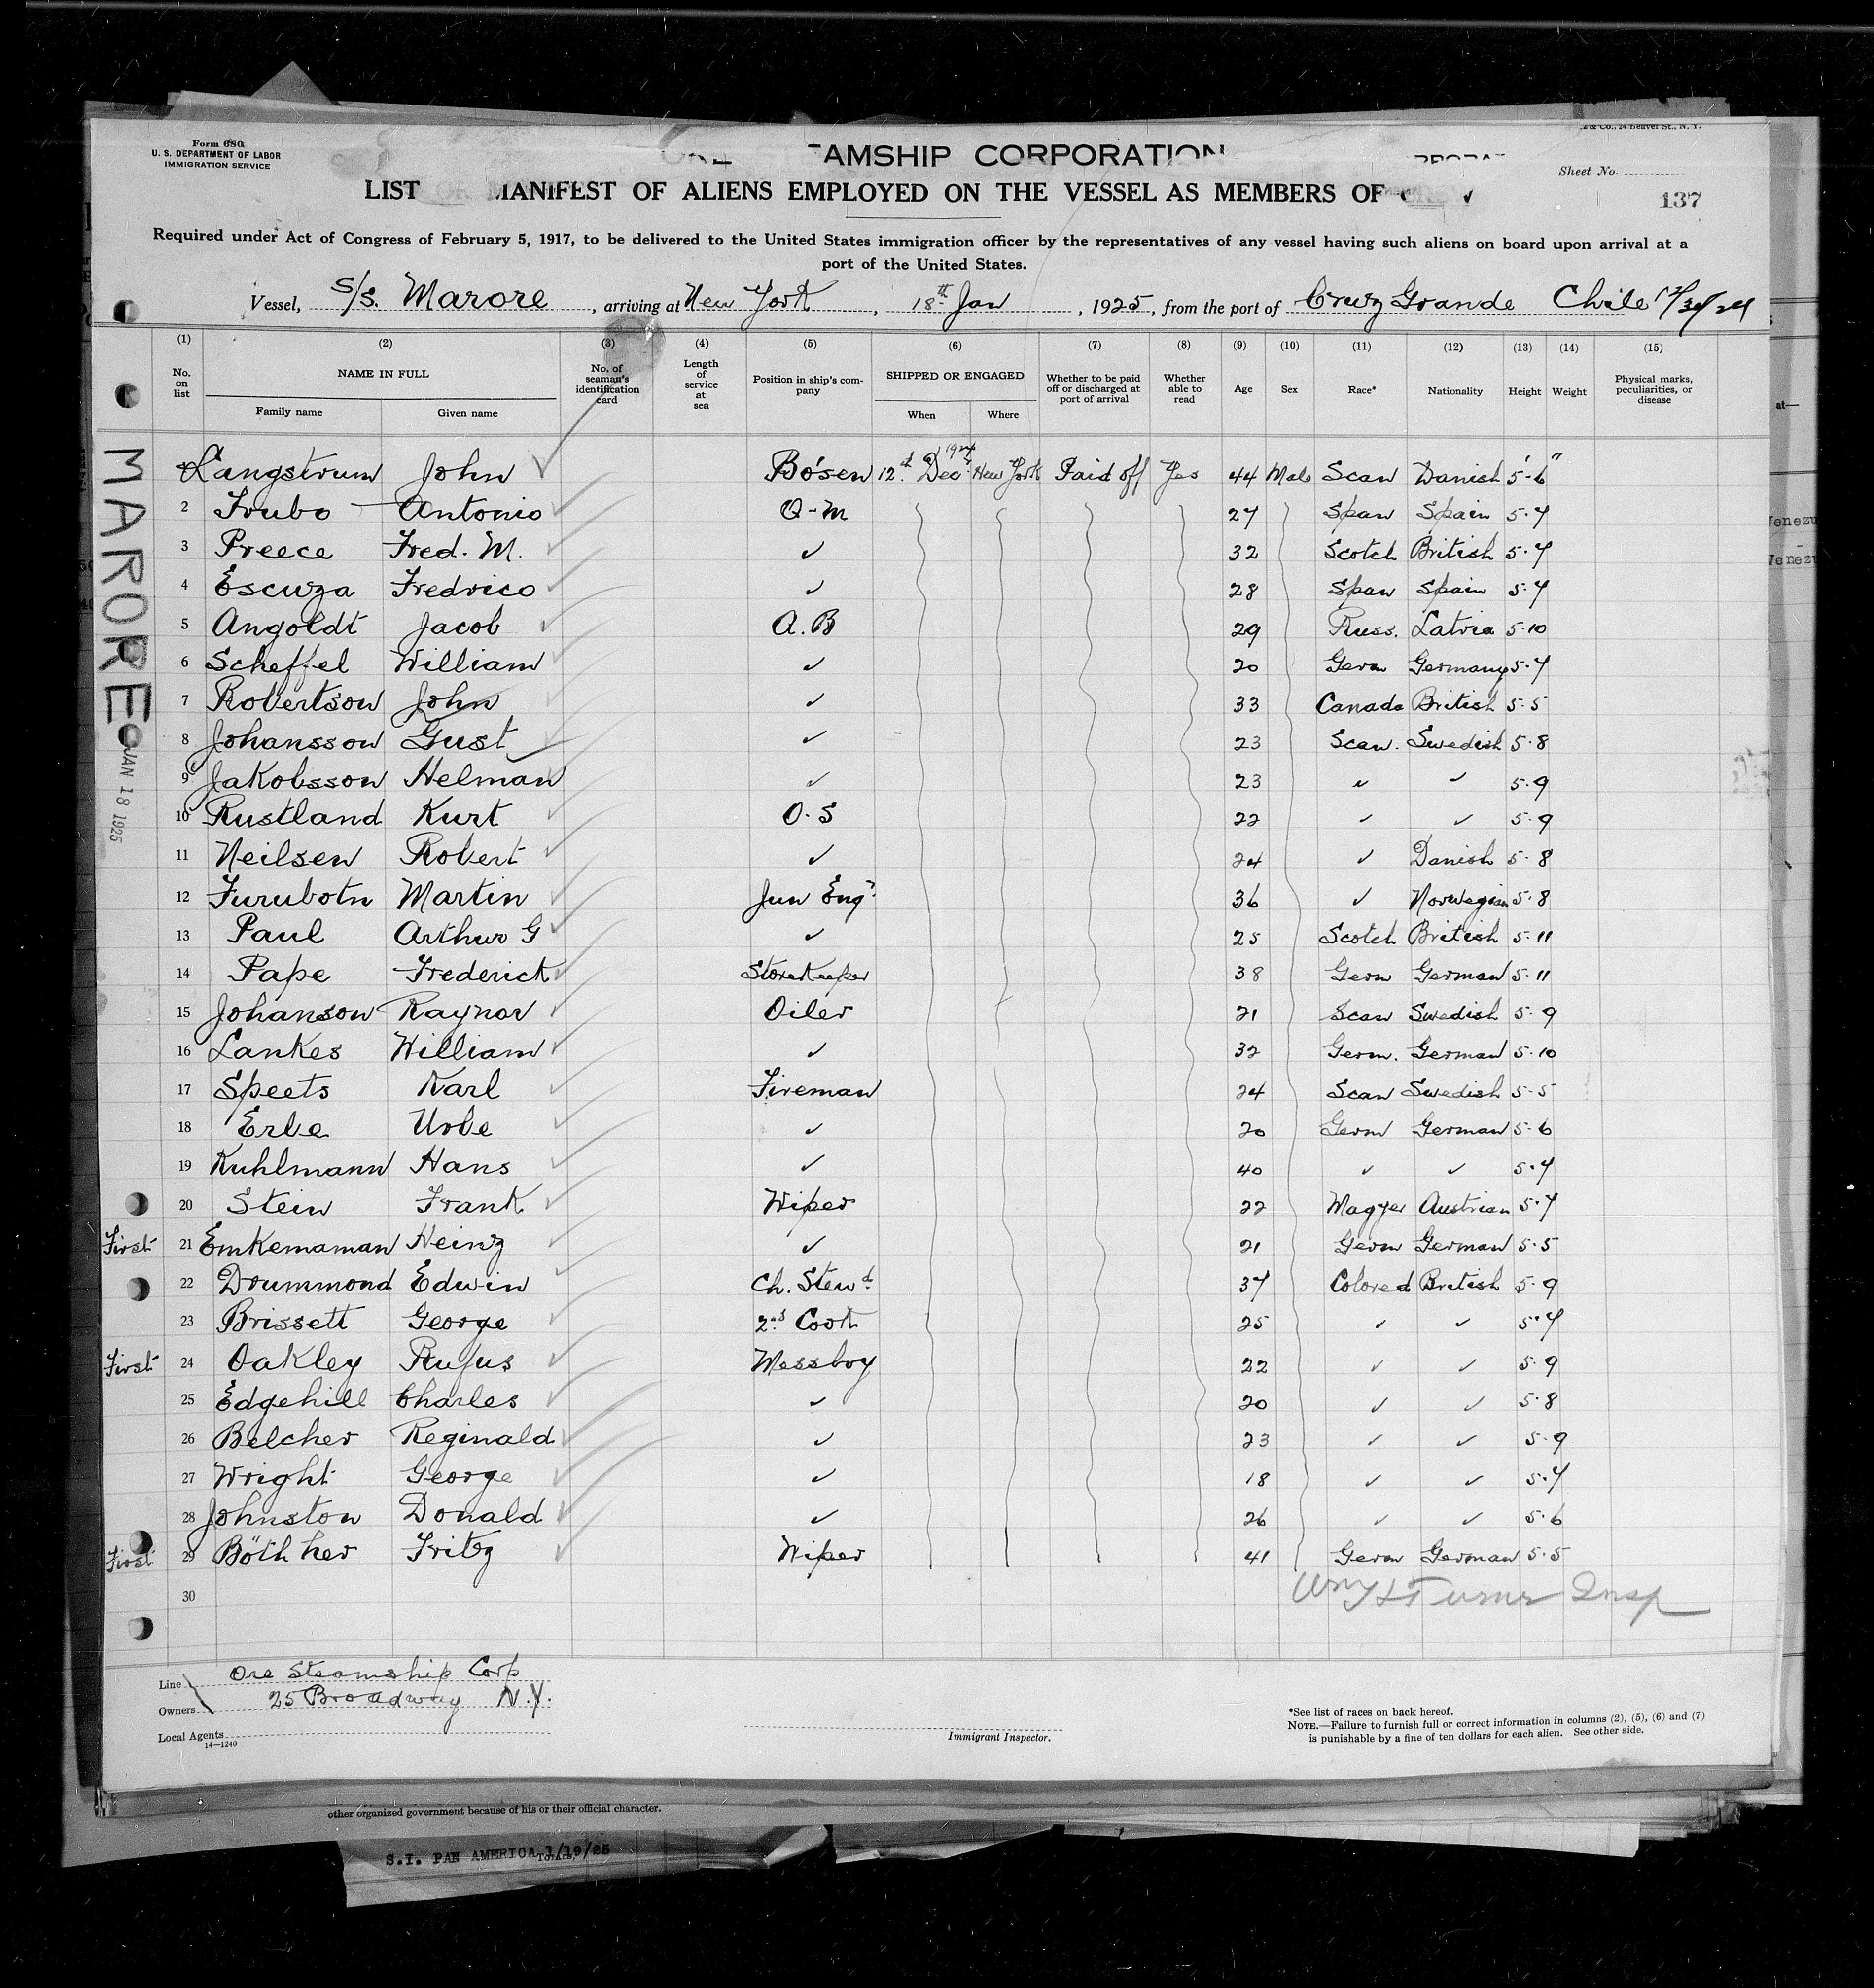 & Co., 24 Beaver St., N. Y.
Form 680
U. S. DEPARTMENT OF LABOR
IMMIGRATION SERVICE
AMSHIP CORPORATION
Sheet No.
LIST OR MANIFEST OF ALIENS EMPLOYED ON THE VESSEL AS MEMBERS OF
137
Required under Act of Congress of February 5, 1917, to be delivered to the United States immigration officer by the representatives of any vessel having such aliens on board upon arrival at a
port of the United States.
Vessel, S/S. Marore, arriving at New York, 18th Jan, 1925, from the port of Cruz Grande Chile 12/30/24
(1) (2) (3) (4) (5) (6) (7) (8) (9) (10) (11) (12) (13) (14) (15)
No. on list NAME IN FULL Family name Given name No. of seaman's identification card Length of service at sea Position in ship's company SHIPPED OR ENGAGED When Where Whether to be paid off or discharged at port of arrival Whether able to read Age Sex Race* Nationality Height Weight Physical marks, peculiarities, or disease
MARORE
JAN 18 1925
Langstrum John ✓ Bo'sen 12. Dec 1924 New York Paid off Yes 44 Male Scan Danish 5'-6"
2 Trubo Antonio ✓ Q-M 27 Span Spain 5.7
3 Preece Fred. M. ✓ ✓ 32 Scotch British 5.7
4 Escuza Fredrico ✓ ✓ 28 Span Spain 5.7
5 Angoldt Jacob ✓ A.B 29 Russ. Latvia 5.10
6 Scheffel William ✓ ✓ 20 Germ Germany 5.7
7 Robertson John ✓ 33 Canada British 5.5
8 Johansson Gust ✓ ✓ 23 Scan. Swedish 5.8
9 Jakobsson Helman ✓ 23 ✓ ✓ 5.9
10 Rustland Kurt ✓ O.S 22 ✓ ✓ 5.9
11 Neilsen Robert ✓ ✓ 24 ✓ Danish 5.8
12 Furubotn Martin ✓ Jun Engr. 36 ✓ Norwegian 5.8
13 Paul Arthur G ✓ ✓ 25 Scotch British 5.11
14 Pape Frederick ✓ StoreKeeper 38 Germ German 5.11
15 Johanson Raynor ✓ Oiler 21 Scan Swedish 5.9
16 Lankes William ✓ ✓ 32 Germ. German 5.10
17 Speets Karl ✓ Fireman 24 Scan Swedish 5.5
18 Erbe Urbe ✓ ✓ 20 Germ German 5.6
19 Kuhlmann Hans ✓ ✓ 40 ✓ ✓ 5.7
20 Stein Frank ✓ Wiper 22 Magyer Austrian 5.7
First 21 Emkemaman Heinz ✓ ✓ 21 Germ German 5.5
22 Drummond Edwin ✓ Ch. Stewd. 37 Colored British 5.9
23 Brissett George ✓ 2nd Cook 25 ✓ ✓ 5.7
First 24 Oakley Rufus ✓ Messboy 22 ✓ ✓ 5.9
25 Edgehill Charles ✓ ✓ 20 ✓ ✓ 5.8
26 Belcher Reginald ✓ ✓ 23 ✓ ✓ 5.9
27 Wright George ✓ ✓ 18 ✓ ✓ 5.7
28 Johnston Donald ✓ ✓ 26 ✓ ✓ 5.6
First 29 Böthher Fritz ✓ Wiper 41 Germ German 5.5
30
Turner Insp
Line Ore Steamship Corp
Owners 25 Broadway N.Y.
Local Agents
14—1240
Immigrant Inspector.
*See list of races on back hereof.
NOTE.—Failure to furnish full or correct information in columns (2), (5), (6) and (7)
is punishable by a fine of ten dollars for each alien. See other side.
other organized government because of his or their official character.
S.I. PAN AMERICA 1/19/25
at—